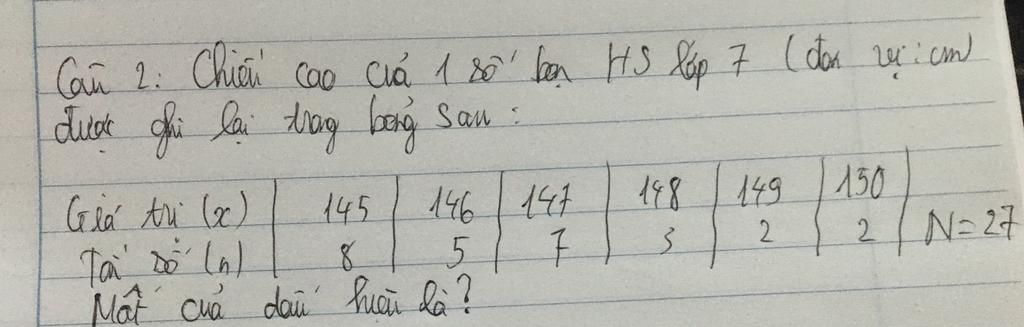 Câu 2: Chiều cao của 1 số bạn HS lớp 7 (đơn vị: cm)
được ghi lại trong bảng sau:
Giá trị (x) 145 146 147 148 149 150
Tần số (n) 8 5 7 3 2 2 N=27
Mốt của dấu hiệu là?